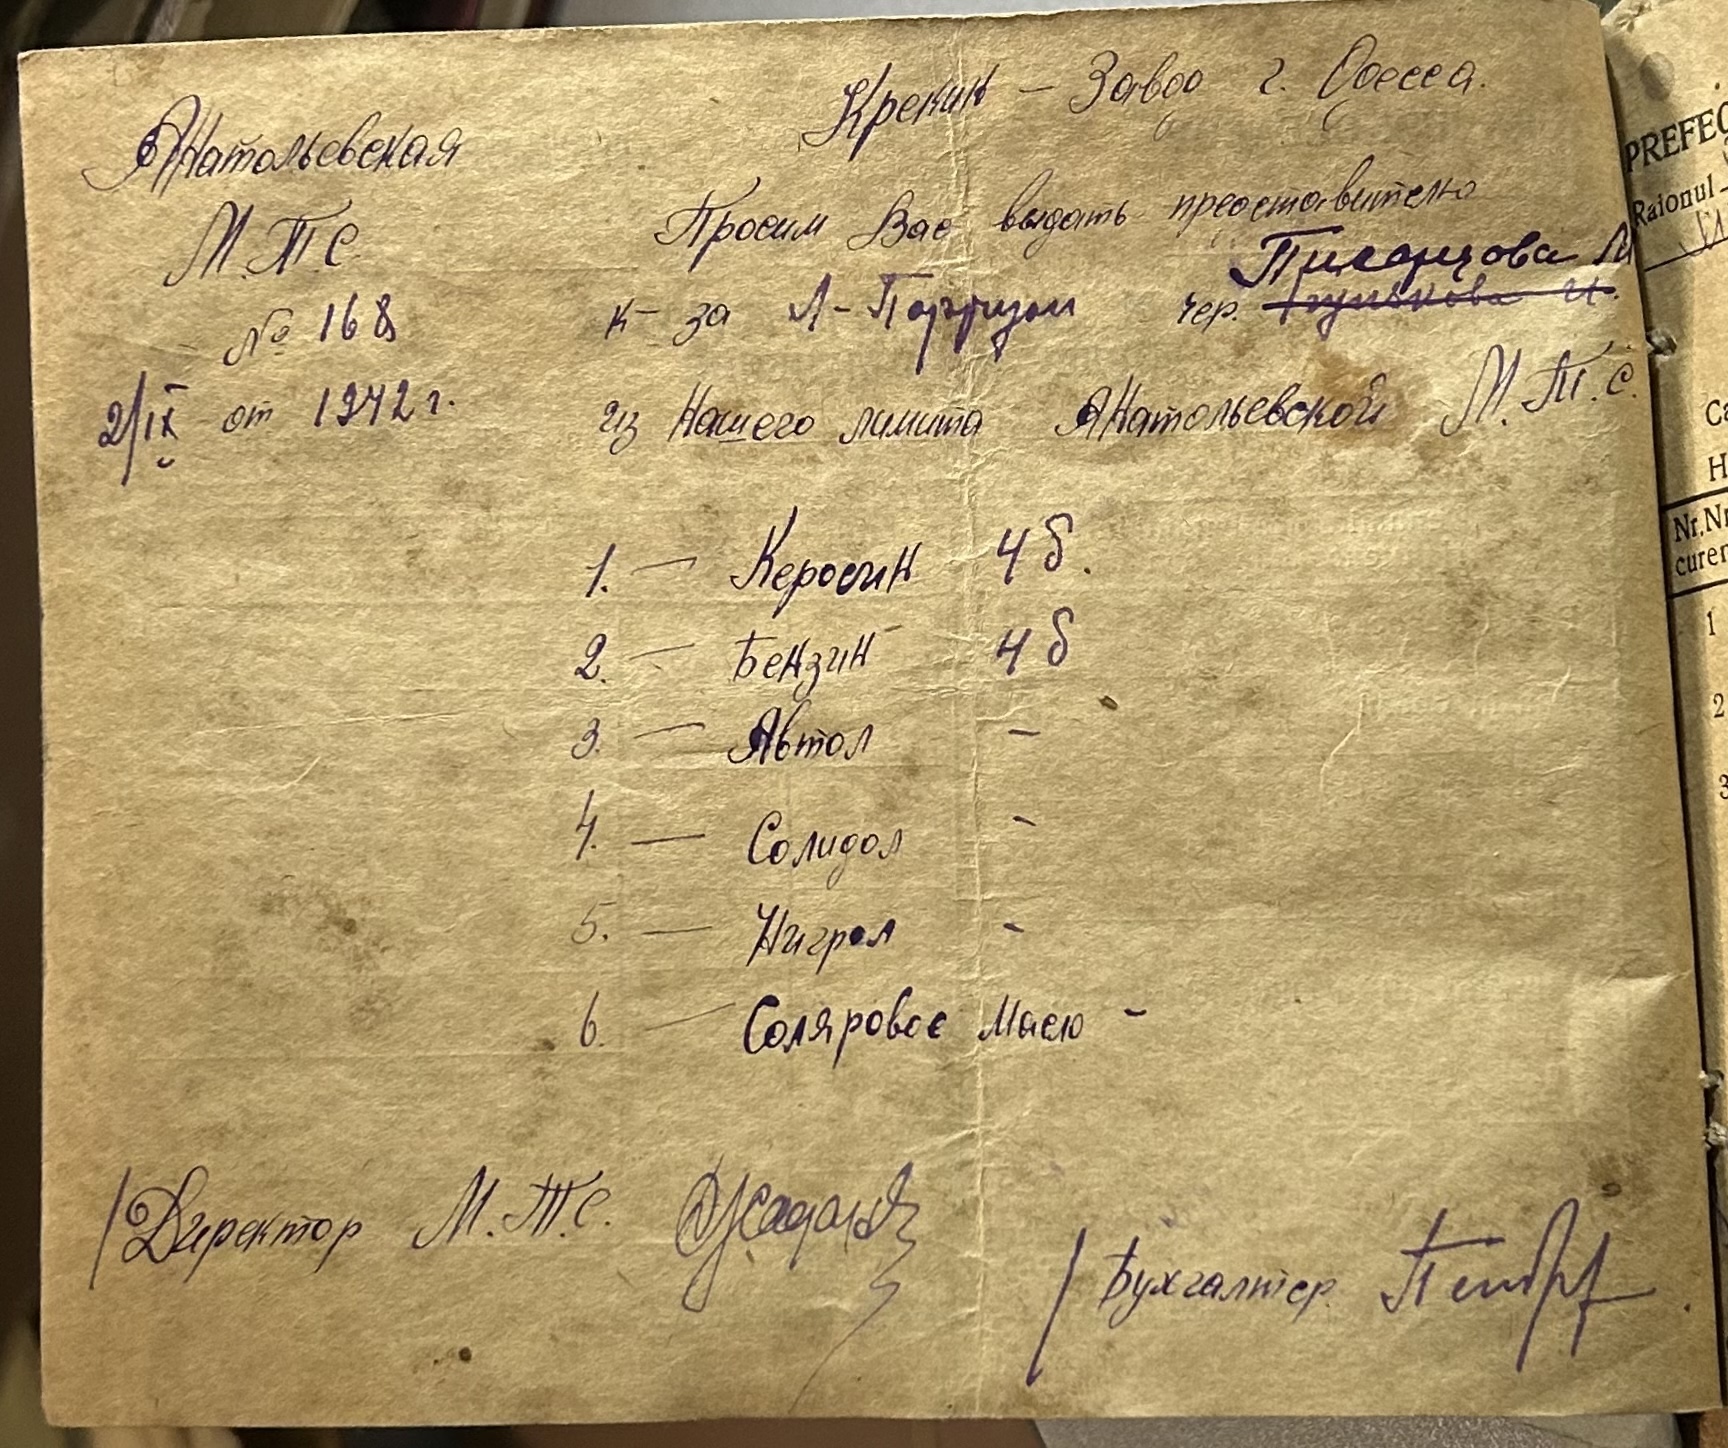 Крекик - Завод г. Одесса.
Анатольевская
М.Т.С.
№ 168
2/IX от 1942 г.
Просим Вас выдать представителю
к-за Л-Партизан чер. Писанцова И
из Нашего лимита Анатольевской М.Т.С.
1. — Керосин 4 б.
2. — Бензин 4 б
3. — Автол -
4. — Солидол -
5. — Нигрол -
6. — Соляровое Масло -
Директор М.Т.С.
Бухгалтер
PREFEC
Raionul -
Nr. Nr
curen
1
2
3